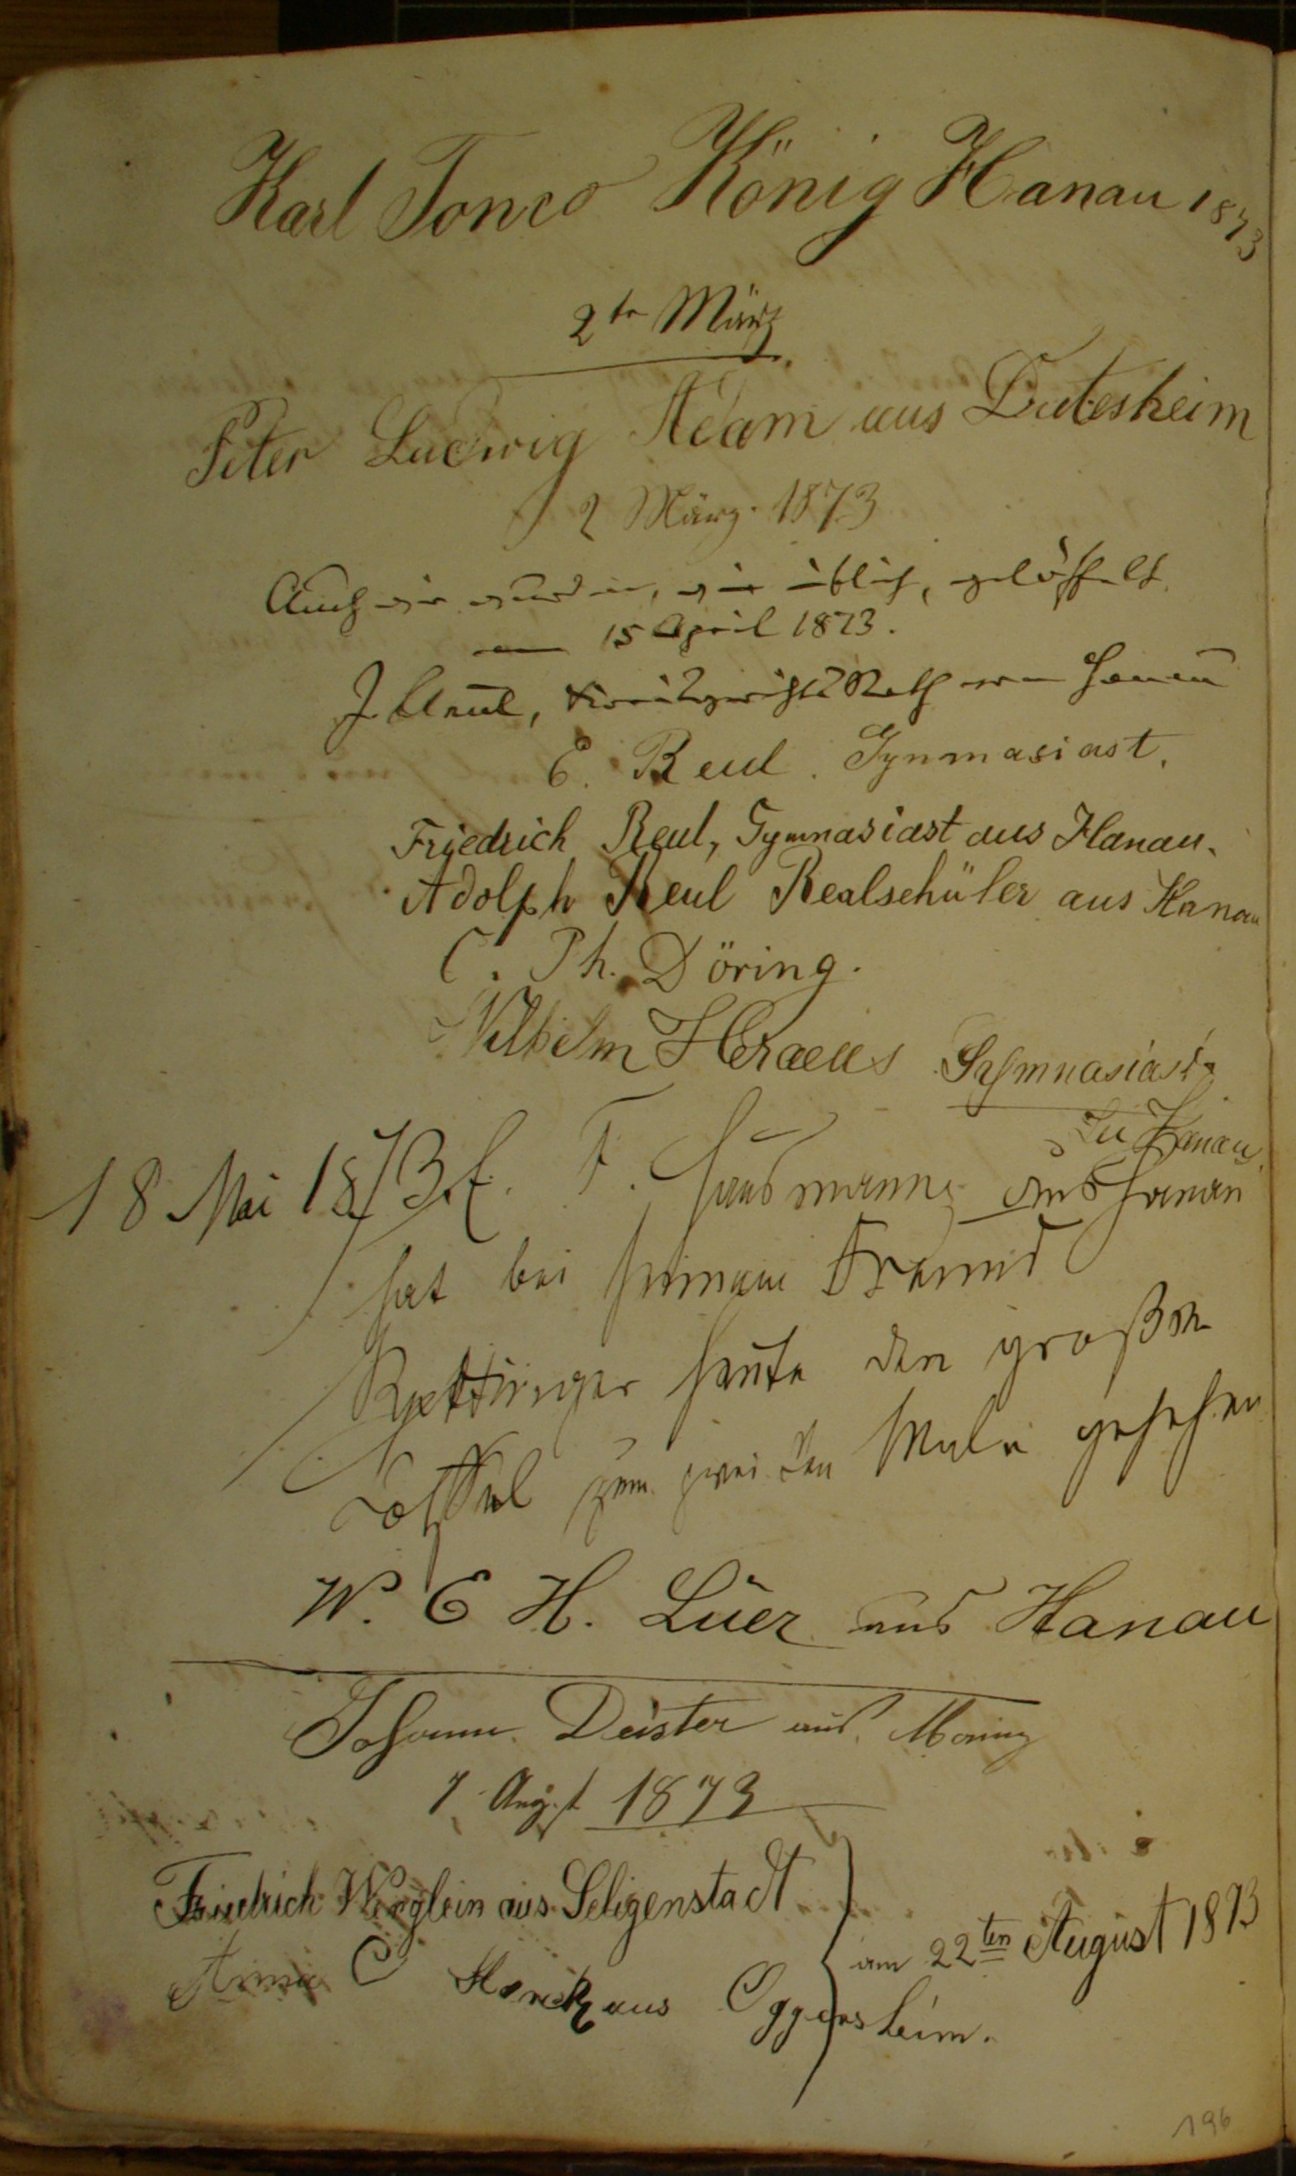 Karl König Hanau 1873
2te März
Peter Ludwig Adam aus
2 März. 1873
Auch wir wurden, wie üblich, gelöffelt
am 15 April 1873.
Reul, KreisgerichtsRath von Hanau
E. Reul. Gymnasiast.
Friedrich Reul, Gymnasiast aus Hanau.
Adolph Reul Realschüler aus Hanau
C. Ph. Döring.
Wilhelm Heraeus Gymnasiast
zu Hanau.
18 Mai 1873. F. Hausmann aus Hanau
hat bei seinem Freund
heute den großen
Löffel zum zweiten Male gesehen
W. E H. Lüer aus Hanau
Johann Deister aus
7 August 1873
Friedrich aus Seligenstadt
am 22ten August 1873
Anna C aus Oggersheim.
196